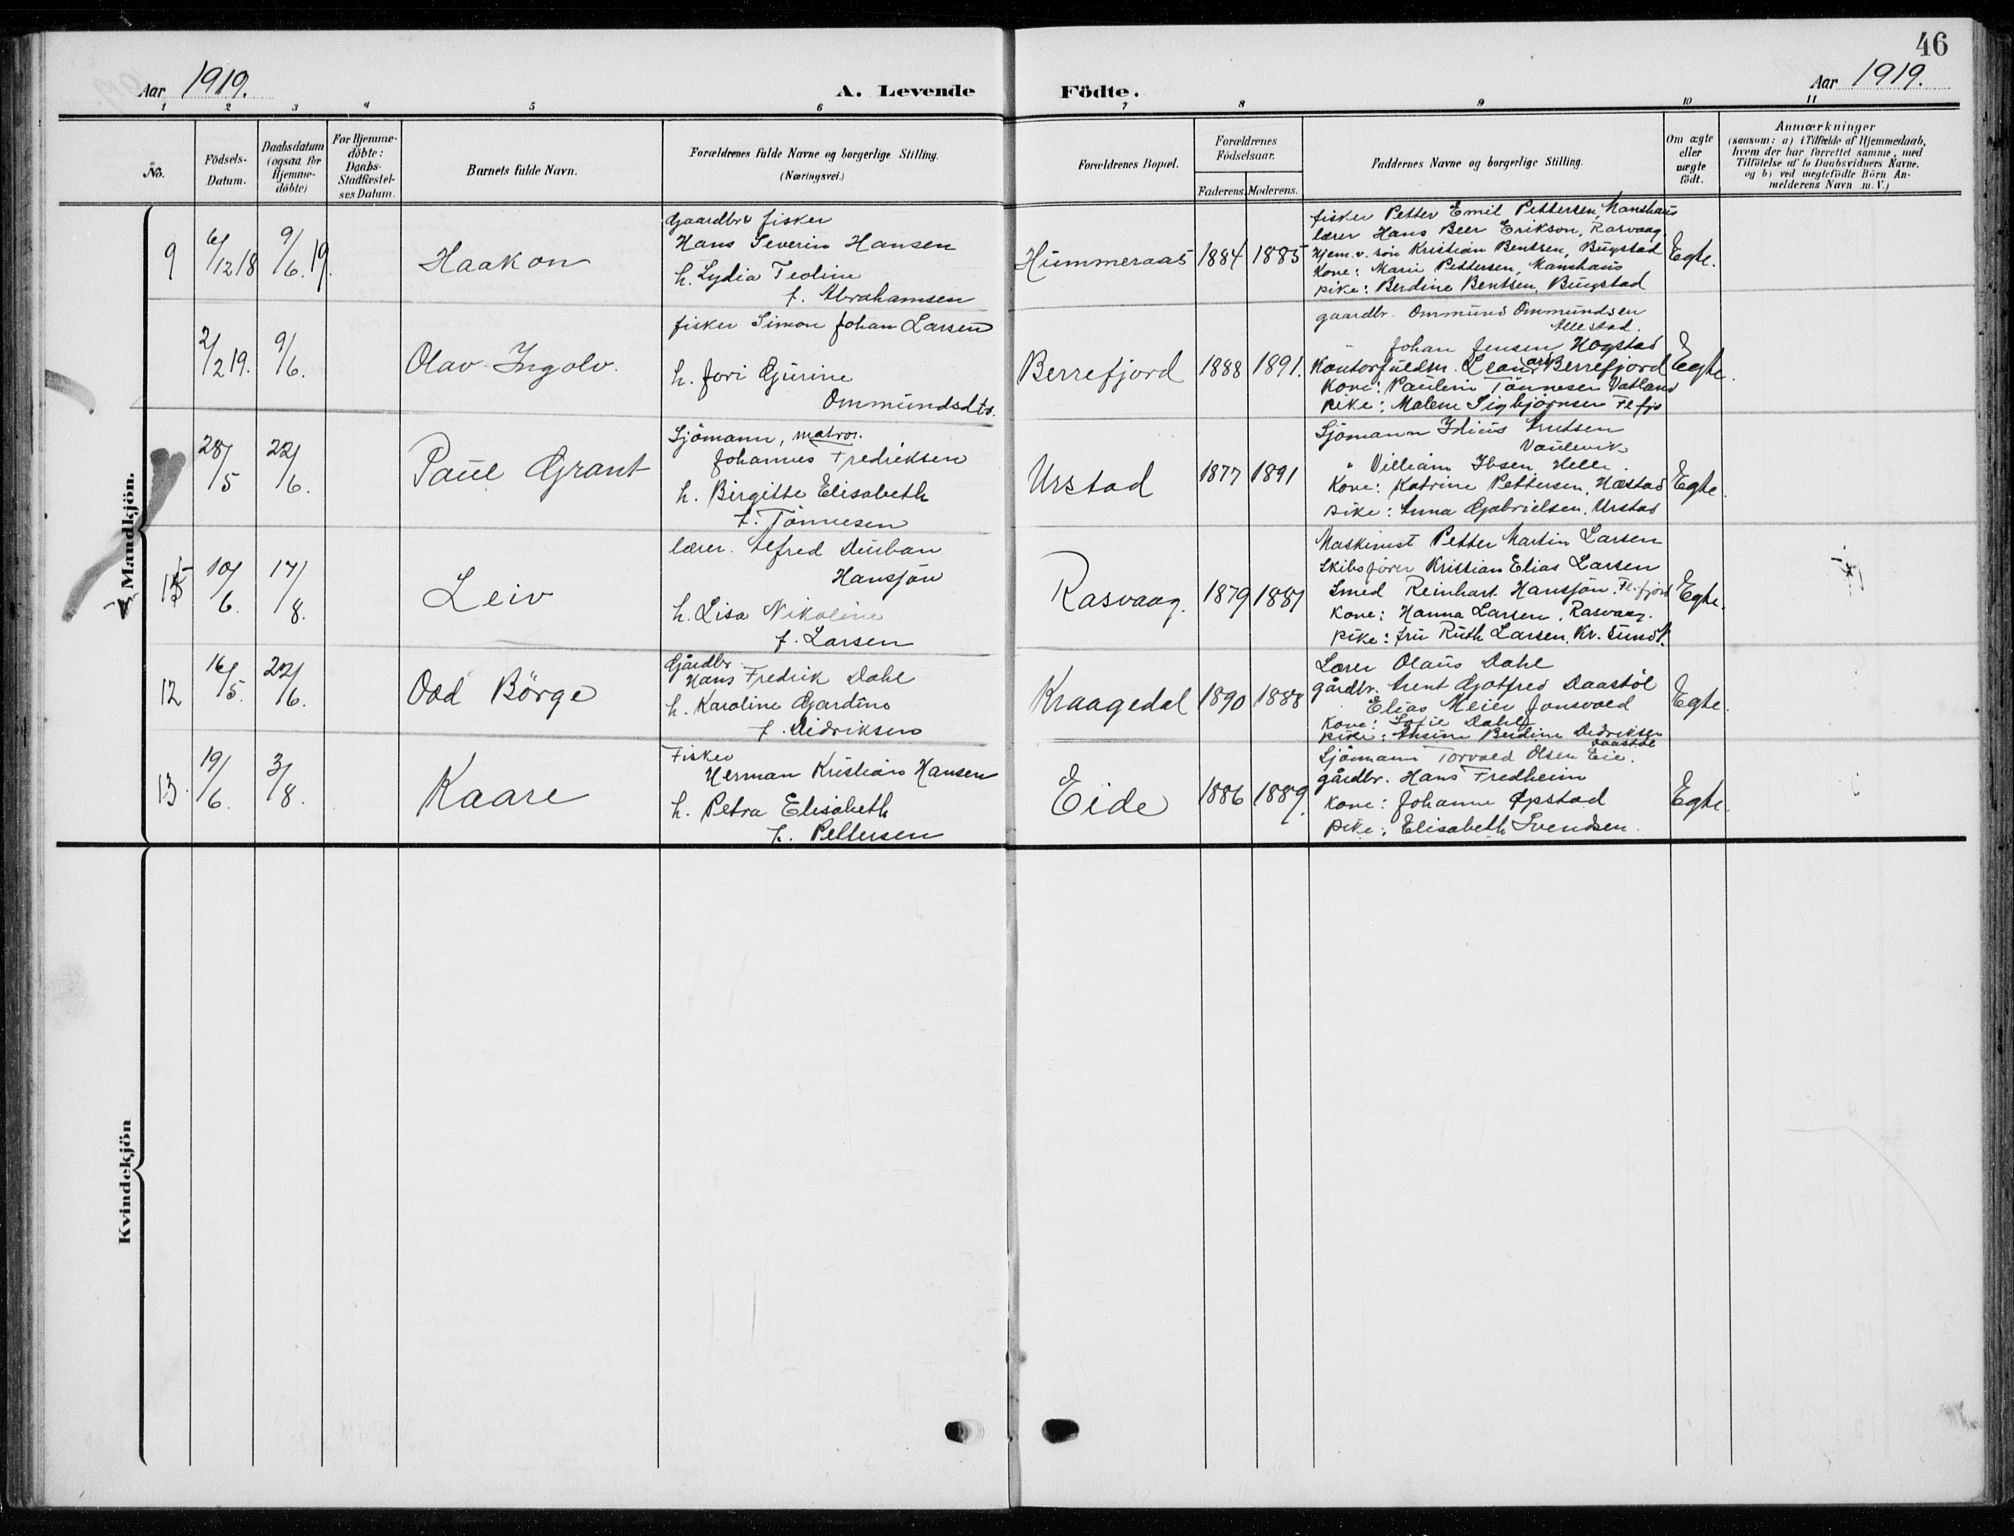 46
Aar 1919.
A. Levende Födte.
Aar 1919.
1 2 3 4 5 6 7 8 9 10 11
No.
Födsels-
Datum.
Daabsdatum
(ogsaa for
Hjemme-
döbte)
For Hjemme-
döbte:
Daabs-
Stadfæstel-
ses Datum.
Barnets fulde Navn.
Forældrenes fulde Navne og borgerlige Stilling.
(Næringsvei.)
Forældrenes Bopæl.
Forældrenes
Födselsaar.
Faderens. Moderens.
Faddernes Navne og borgerlige Stilling.
Om ægte
eller
uægte
födt.
Anmærkninger
(saasom: a) i Tilfælde af Hjemmedaab,
hvem der har forrettet samme, med
Tilföielse af to Daabsvidners Navne,
og b) ved uægtefödte Börn An-
melderens Navn m. V.)
Mandkjön.
9
6/12 18
9/6. 19.
Haakon
Gaardbr & fisker
Hans Severin Hansen
h. Lydia Teoline
f. Abrahamsen
Hummeraas
1884 1885
fisker Petter Emil Pettersen, Manshaus
lærer Hans Beer Erikson, Rasvaag
Hjem. v. søn Kristian Bentsen, Bugstad
Kone: Marie Pettersen, Manshaus
pike: Berdine Bentsen, Bugstad
Egte.
2/2 19.
9/6.
Olav Ingolv.
fisker Simon Johan Larsen
h. Jori Gurine
Ommundsdtr.
Berrefjord
1888 1891.
gaardbr. Ommund Ommundsen
Allestad.
" Johan Jensen Hogstad
Kontorfuldm. Berrefjord
Kone: Pauline Tönnesen Vatland
pike: Malene Sigbjørnsen Fl. fjo
Egte.
28/5
22/6.
Paul Grant
Sjömann, matros.
Johannes Fredriksen
h. Birgitte Elisabeth
f. Tönnesen
Urstad
1877 1891
Sjömann Knutsen
" Villiam Ibsen, Helle.
Kone: Katrine Pettersen, Næstad
pike: Anna Gabrielsen, Urstad
Egte.
10/6.
17/8.
Leiv
lærer. Alfred Durban
Hansjön
h. Lisa Nikoline
f. Larsen
Rasvaag.
1879 1881
Maskinist Petter Martin Larsen
Skibsförer Kristian Elias Larsen
Smed Reinhart Hansjön, Fl. fjord
Kone: Hanna Larsen, Rasvaag.
pike: fru Ruth Larsen, Kr. sund.
Egte.
12
16/5.
22/6.
Odd Börge
Gårdbr.
Hans Fredrik Dahl
h. Karoline Gardine
f. Didriksen
Kraagedal
1890 1888
Lærer Olaus Dahl
gårdbr. Arent Gotfred Daastöl
Elias Meier Jonsvold
Kone: Sofie Dahl
pike: Ansine Berdine Didriksen
Daastöl
Egte.
13.
19/6.
3/8.
Kaare
Fisker
Herman Kristian Hansen
h. Petra Elisabeth
f. Pettersen
Eide
1886 1889.
Sjömann Torvald Olsen Eie.
gårdbr. Hans Fredheim
Kone: Johanne Opstad
pike: Elisabeth Svendsen.
Egte.
Kvindekjön